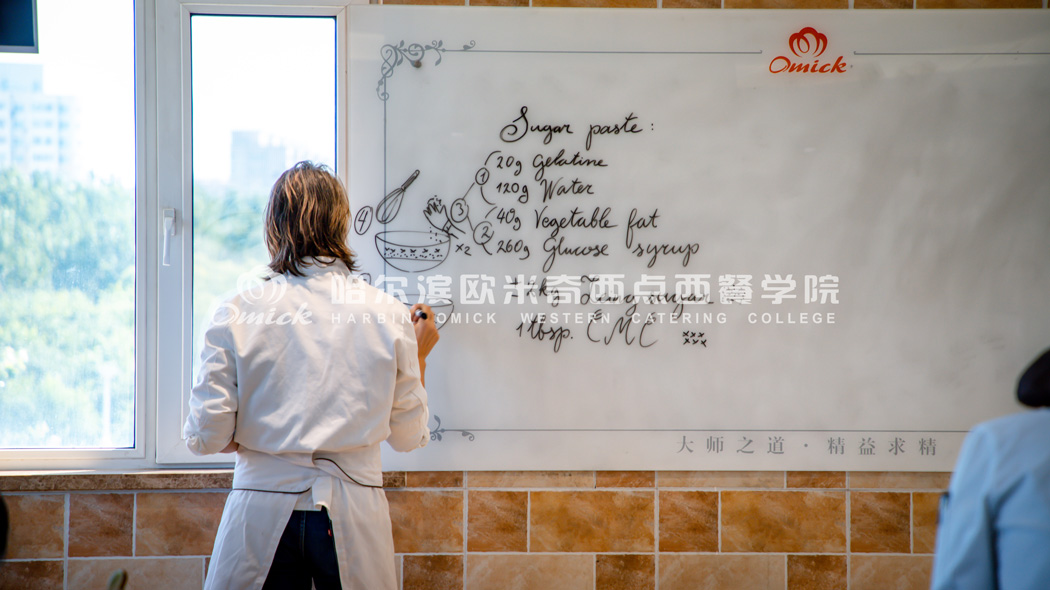 Omick
Sugar paste :
20g Gelatine
120g Water
40g Vegetable fat
260g Glucose syrup
1 tbsp. CMC
1
2
3
4
x2
哈尔滨欧米奇西点西餐学院
Omick
HARBIN OMICK WESTERN CATERING COLLEGE
大师之道·精益求精